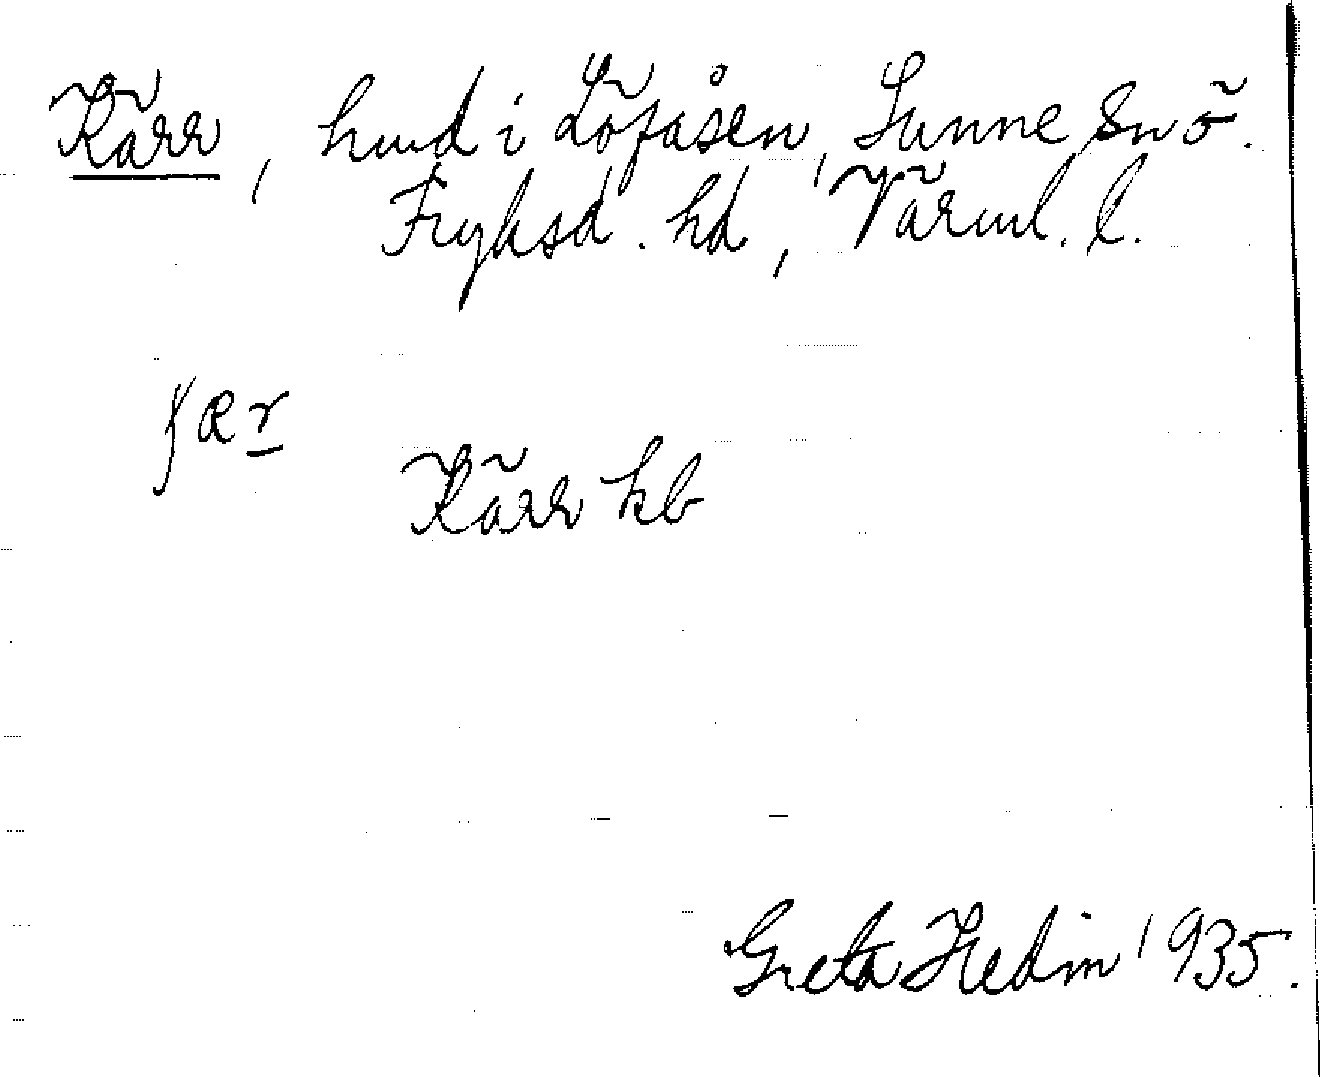 Kärr, hmd i Löfåsen, Sunne snö.
Fryksd. hd, Värml. l.
ʃær
Kärr kb
Greta Hedin 1935.